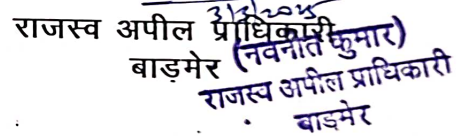 3/3/2025
राजस्व अपील प्राधिकारी
(नवनीत कुमार)
बाड़मेर
राजस्व अपील प्राधिकारी
बाड़मेर